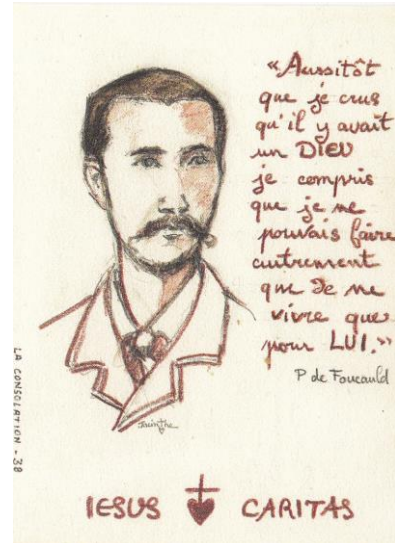 «Aussitôt
que je crus
qu'il y avait
un DIEU
je compris
que je ne
pouvais faire
autrement
que de ne
vivre que
pour LUI.»
P de Foucauld
LA CONSOLATION - 38
IESUS CARITAS